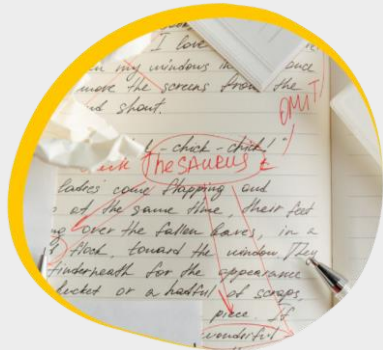 I love
my windows in
move the screens from the
and shout.
OMIT
- chick - chick!"
THESAURUS
ladies' come flapping and
at the same time, their feet
over the fallen leaves, in a
flock, toward the window. They
underneath for the appearance
bucket or a hatful of scraps,
piece. If
wonderful